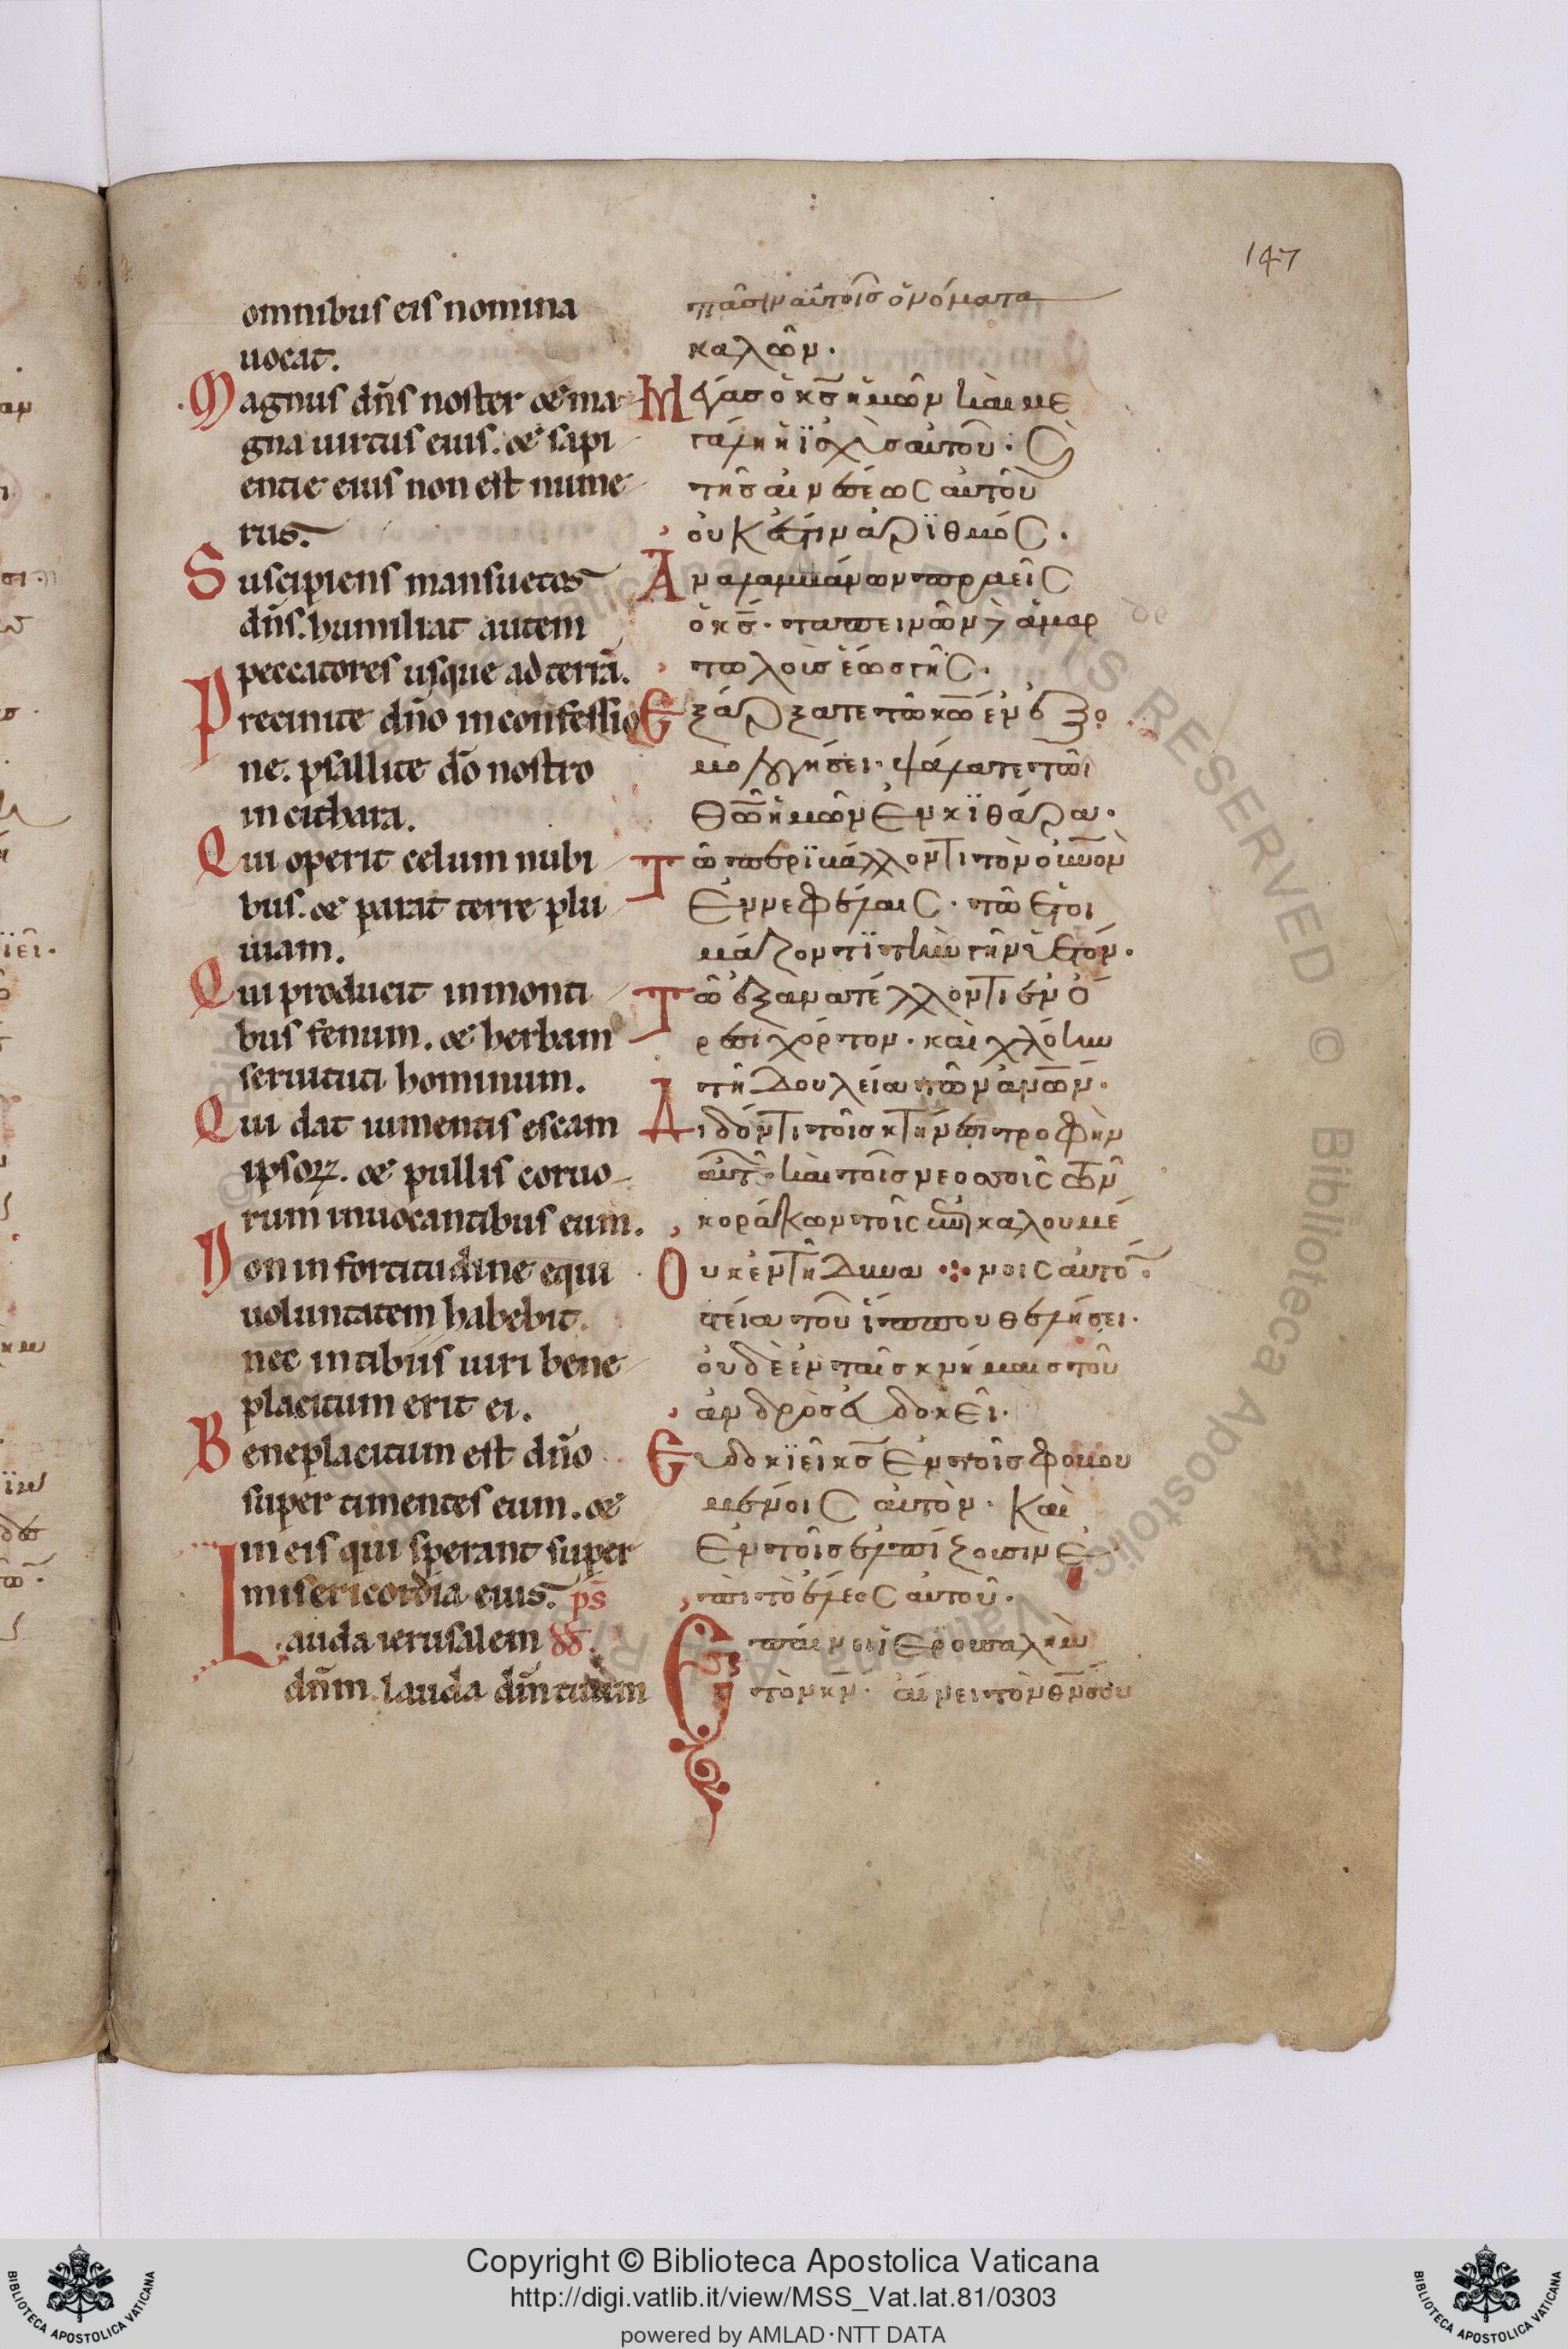 147
omnibus eis nomina
uocat.
Magnus dñs noster & ma
gna uirtus eius. & sapi
entie eius non est nume
rus.
Suscipiens mansuetos
dñs. humiliat autem
peccatores usque ad terrã.
Precinite dño in confessio
ne. psallite dõ nostro
in cithara.
Qui operit celum nubi
bus. & parat terre plu
uiam.
Qui producit in monti
bus fenum. & herbam
seruituti hominum.
Qui dat iumentis escam
ipsoꝝ. & pullis coruo
rum inuocantibus eum.
Non in fortitudine equi
uoluntatem habebit.
nec in tibiis uiri bene
placitum erit ei.
Beneplacitum est dño
super timentes eum. &
in eis qui sperant super
misericordia eius. ps̄
Lauda ierusalem
dñm. lauda dm̃ tuum
πᾶσιν αὐτοῖσ ὀνόματα
καλῶν.
Μέγασ ὁ κ̅σ̅ ἡμῶν καὶ με
γάλη ἡ ϊσχὺσ αὐτοῦ.
τῆσ συνέσεως αὐτοῦ
οὐκ ἔστιν ἀρϊθμός.
Ἀναλαμβάνων πραεῖς
ὁ κ̅σ̅. ταπεινῶν δὲ ἁμαρ
τωλοὺσ ἕωσ γῆς.
Ἐξάρξατε τῶ κ̅ω̅ ἐν ἐξο
μολογήσει. ψάλατε τῶι
θ̅ω̅ ἡμῶν ἐν κϊθάρα.
Τῶ περϊβάλλοντι τὸν οὐ̅νο̅ν
ἐν νεφέλαις. τῶ ἑτοι
μάζοντϊ τὴν γῆν ὑετόν.
Τῶ ἐξανατέλλοντι ἐν ὄ
ρεσι χόρτον. καὶ χλόην
τῆ δουλεία τῶν ἀν̅ω̅ν.
Διδόντι τοῖσ κτήνεσι τροφὴν
αὐτῶν. καὶ τοῖσ νεοσσοῖς τῶν
κοράκων τοῖς ἐπικαλουμέ
Οὐκ ἐν τῆ δυνα ·:· νοις αὐτόν.
στεία τοῦ ἵππου θελήσει.
οὐδὲ ἐν ταῖσ κνήμαισ τοῦ
ἀνδρὸσ εὐδοκεῖ.
Εὐδοκϊεῖ κ̅σ̅ ἐν τοῖσ φοβου
μένοις αὐτὸν. καὶ
ἐν τοῖσ ἐλπίζουσιν ἐ
πὶ τὸ ἔλεος αὐτοῦ.
Ἐπαίνει ϊερουσαλὴμ
τὸν κ̅ν̅. αἴνει τὸν θ̅ν̅ σου
Copyright © Biblioteca Apostolica Vaticana
http://digi.vatlib.it/view/MSS_Vat.lat.81/0303
powered by AMLAD·NTT DATA